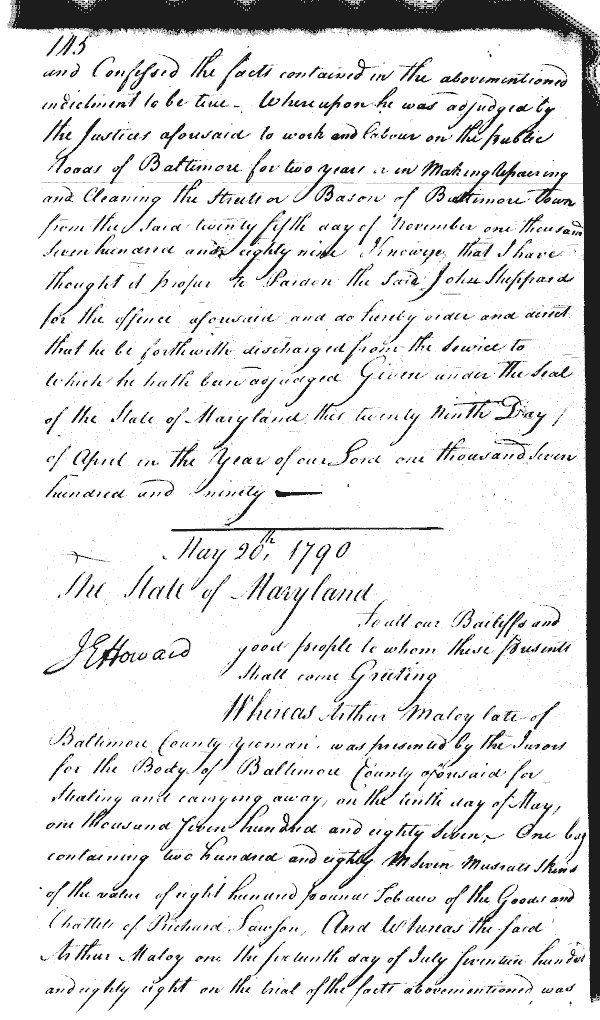 145
and Confessed the facts contained in the abovementioned
indictment to be true - Whereupon he was adjudged by
the Justices aforesaid to work and labour on the public
Roads of Baltimore for two years or in Making Repairing
and Cleaning the Streets or Bason of Baltimore Town
from the said twenty fifth day of November one thousand
seven hundred and eighty nine Know ye, that I have
thought it proper to Pardon the said John Sheppard
for the offence aforesaid and do hereby order and direct
that he be forthwith discharged from the Service to
which he hath been adjudged Given under the Seal
of the State of Maryland this twenty ninth Day
of April in the Year of our Lord one thousand seven
hundred and ninety —
May 20th, 1790
The State of Maryland
To all our Bailiffs and
JEHoward good people to whom these presents
shall come Greeting
Whereas Arthur Maloy late of
Baltimore County yeoman, was presented by the Jurors
for the Body of Baltimore County aforesaid for
Stealing and carrying away, on the tenth day of May,
one thousand Seven hundred and eighty seven, One bag
containing two hundred and eighty seven Musrats skins
of the value of eight hundred pounds Tobacco of the Goods and
Chattels of Richard Lawson, And Whereas the said
Arthur Maloy one the day of July Seventeen hundred
and eighty eight on the trial of the facts abovementioned, was